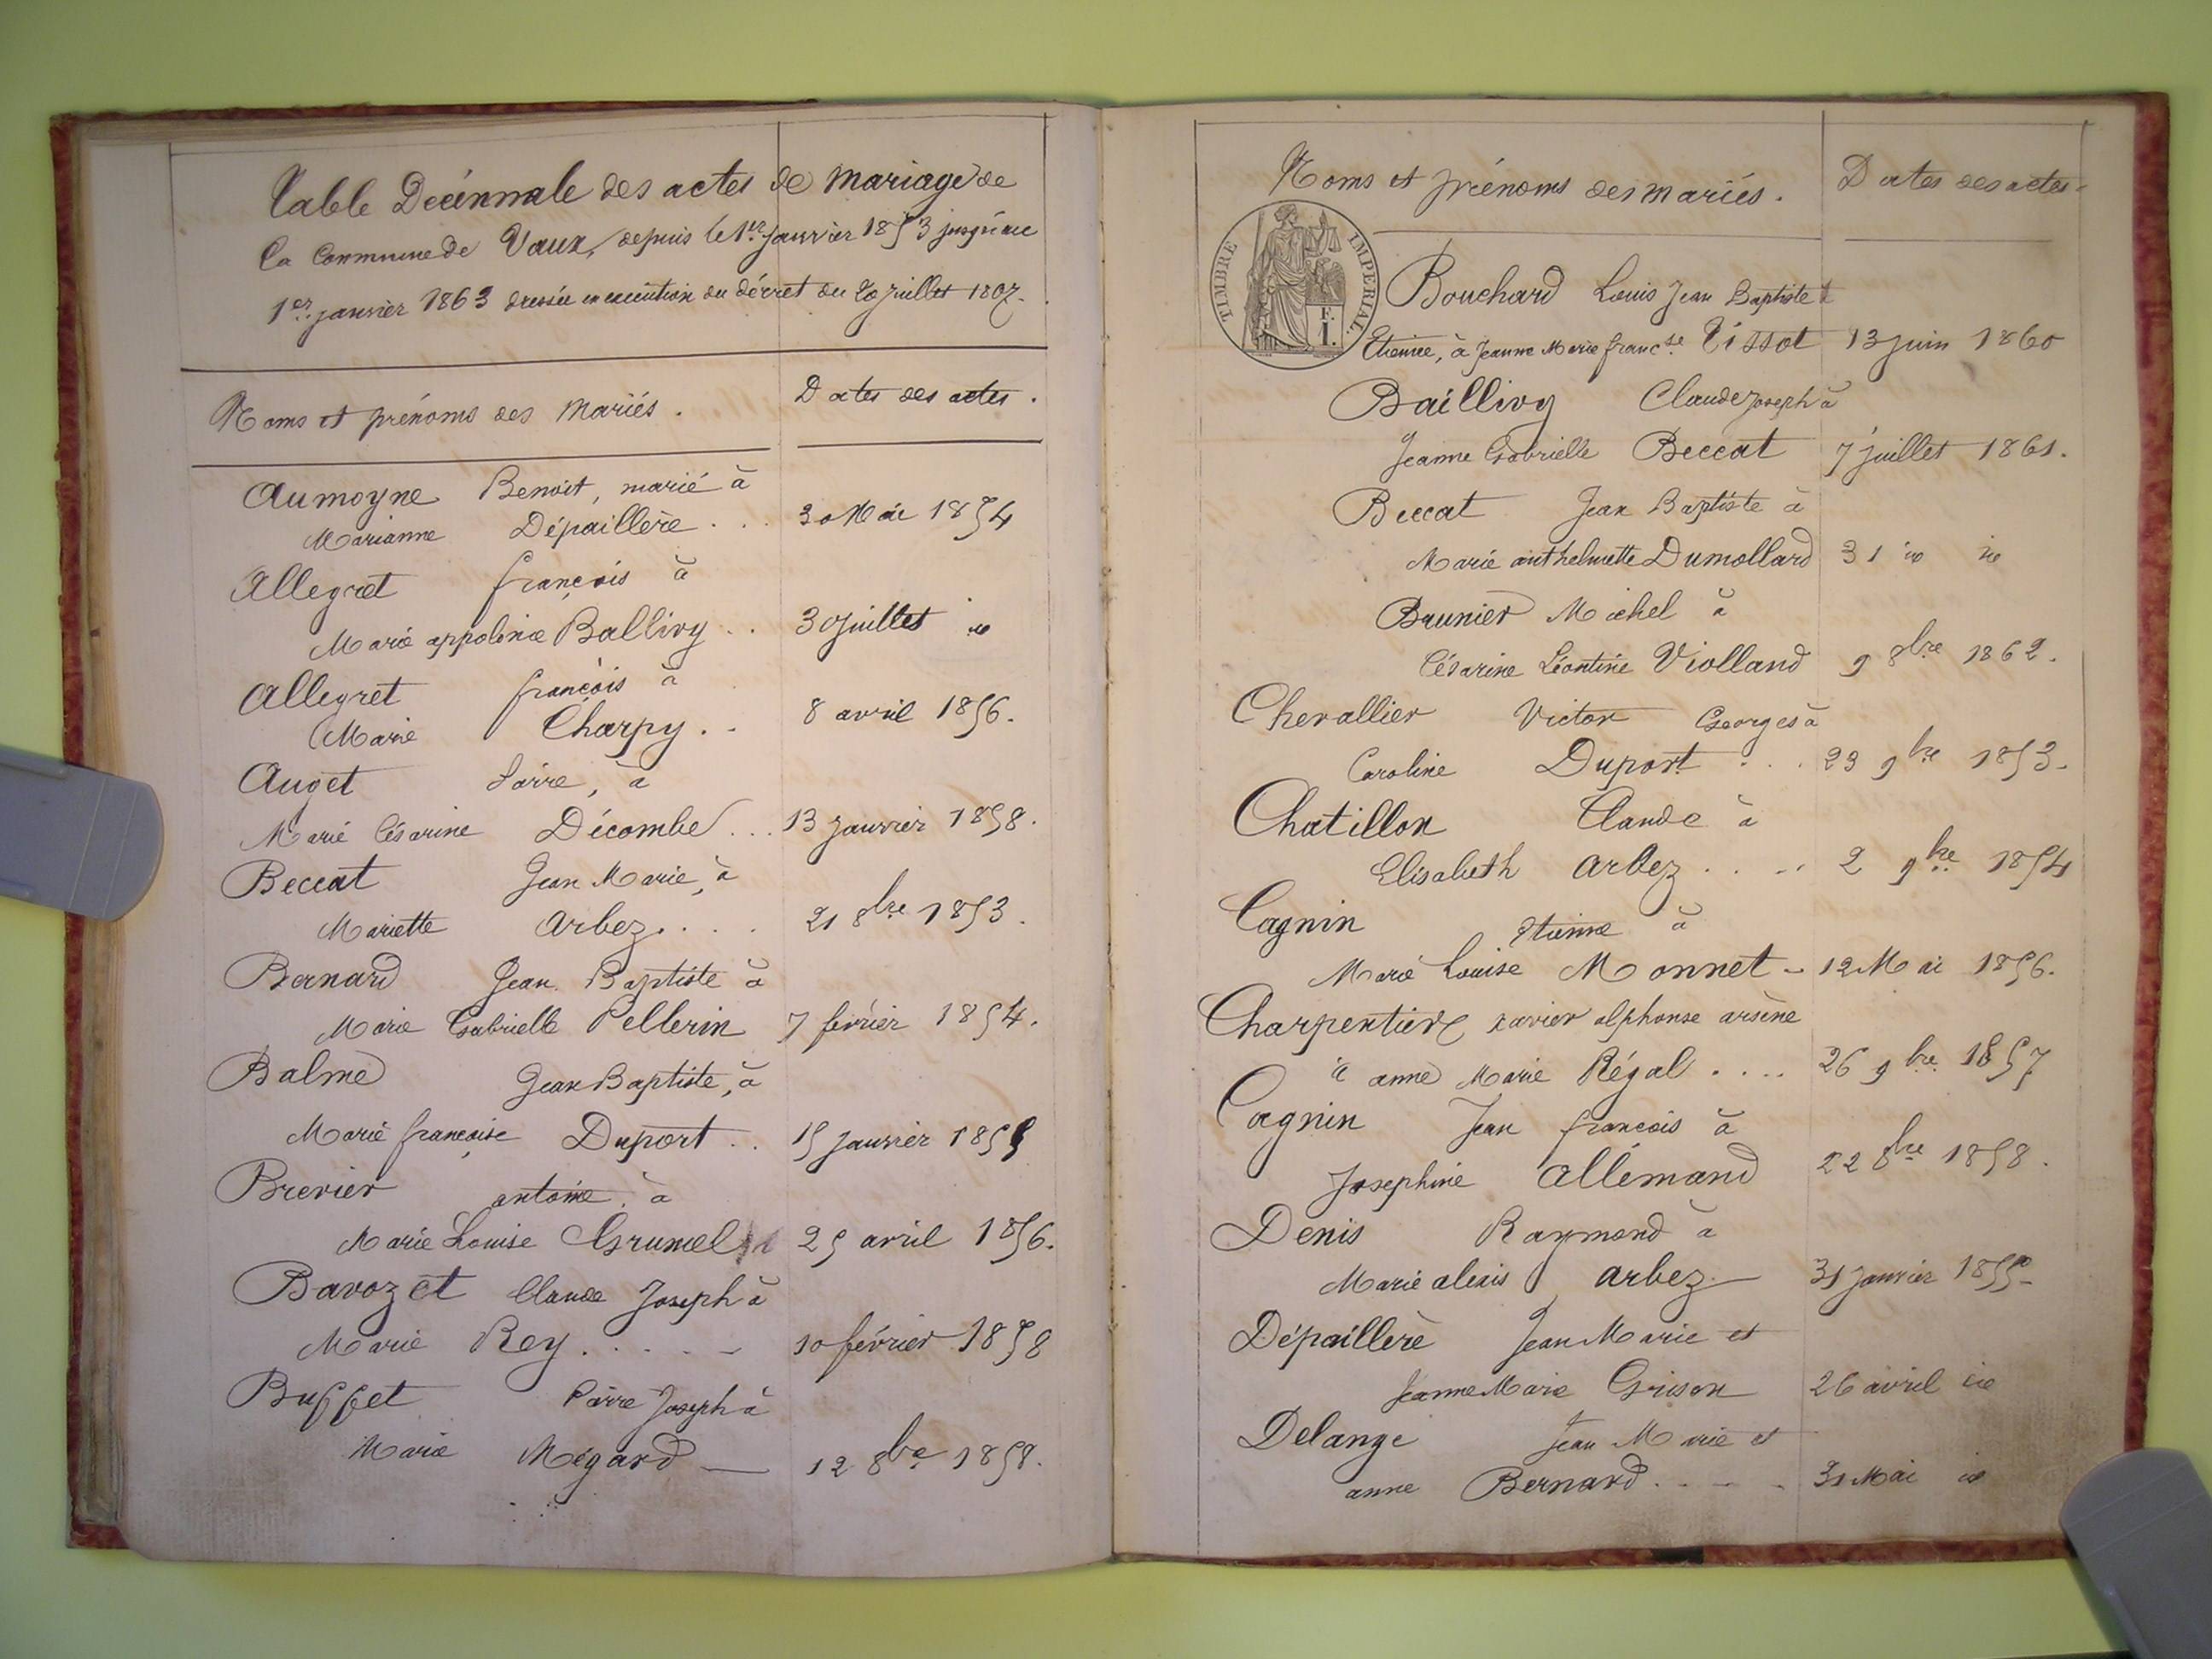 Table Décennale des actes de mariage de
la Commune de Vaux, depuis le 1er janvier 1853 jusqu'au
1er janvier 1863 dressée en exécution du décret du 20 juillet 1807.
Noms et prénoms des mariés.
Dates des actes.
Aumoyne Benoit, marié à
Marianne Dépaillère . . . 30 Mai 1854
Allegret françois à
Marie appolinie Ballivy . . 30 juillet id
Allegret françois à
Marie Charpy . . 8 avril 1856.
Auget Pierre, à
Marie Césarine Décombe . . . 13 janvier 1858.
Beccat Jean Marie, à
Mariette Arbez . . . . 21 8bre 1853.
Bernard Jean Baptiste à
Marie Gabrielle Pellerin 7 février 1854.
Balme Jean Baptiste, à
Marie françoise Duport . . 15 janvier 1855
Brevier antoine à
Marie Louise Grumel 25 avril 1856.
Bavozet Claude Joseph à
Marie Rey . . . . . 10 février 1858
Buffet Pierre Joseph à
Marie Mégard — 12 8bre 1858.
Noms et prénoms des mariés.
Dates des actes.
TIMBRE IMPERIAL.
F.
1.
Bouchard Louis Jean Baptiste
Etienne, à Jeanne Marie francse Tissot 13 juin 1860
Baillivy Claude Joseph à
Jeanne Gabrielle Beccat 7 juillet 1861.
Beccat Jean Baptiste à
Marie anthelmette Dumollard 31 id id
Brunier Michel à
Césarine Léontine Violland 9 8bre 1862.
Chevallier Victor Georges à
Caroline Duport . . . 23 9bre 1853.
Chatillon Claude à
Elisabeth Arbez . . . . 2 9bre 1854
Cagnin Etienne à
Marie Louise Monnet - 12 Mai 1856.
Charpentier xavier alphonse arsène
à anne Marie Régal . . . . 26 9bre 1857
Cagnin Jean françois à
Josephine Allemand 22 8bre 1858.
Denis Raymond à
Marie alexis Arbez. — 31 janvier 1855-
Dépaillère Jean Marie et
Jeanne Marie Grison 26 avril id
Delange Jean Marie et
anne Bernard . . . . 31 Mai id